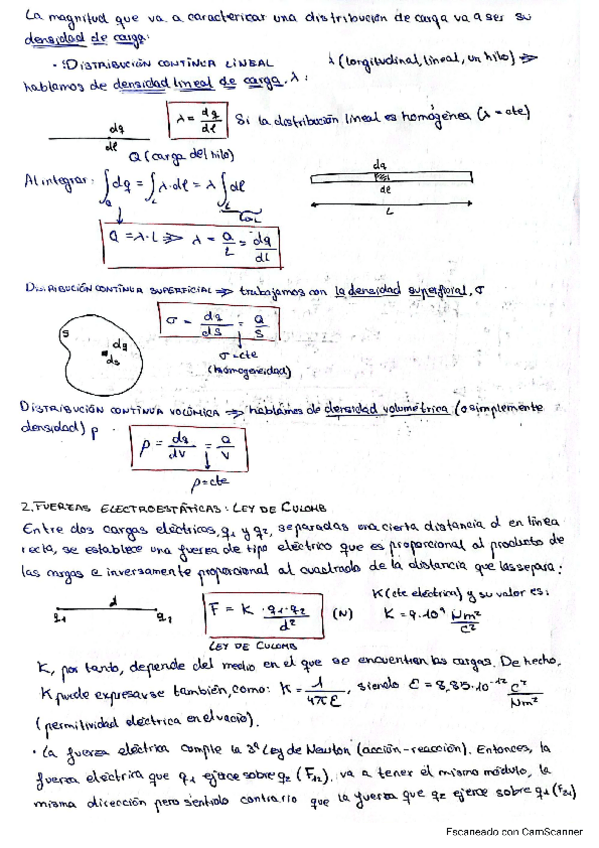 La magnitud que va a caracterizar una distribución de carga va a ser su
densidad de carga:
• DISTRIBUCIÓN CONTINUA LINEAL λ (longitudinal, lineal, un hilo) ⇒
hablamos de densidad lineal de carga, λ:
λ = dq/dl Si la distribución lineal es homogénea (λ = cte)
dq
dl
Q (carga del hilo)
Al integrar: ∫_Q dq = ∫_L λ·dl = λ ∫ dl
dq
dl
L
Q = λ·L ⇒ λ = Q/L = dq/dl
DISTRIBUCIÓN CONTINUA SUPERFICIAL ⇒ trabajamos con la densidad superficial, σ
S
dq
ds
σ = dq/dS = Q/S
σ = cte
(homogeneidad)
DISTRIBUCIÓN CONTINUA VOLÚMICA ⇒ hablamos de densidad volumétrica (o simplemente
densidad) ρ
ρ = dq/dV = Q/V
ρ = cte
2. FUERZAS ELECTROESTÁTICAS: LEY DE CULOMB
Entre dos cargas eléctricas, q1 y q2, separadas una cierta distancia d en línea
recta, se establece una fuerza de tipo eléctrico que es proporcional al producto de
las cargas e inversamente proporcional al cuadrado de la distancia que las separa:
d
q1 q2
F = K · q1·q2/d² (N)
LEY DE CULOMB
K (cte eléctrica) y su valor es:
K = 9·10⁹ Nm²/C²
K, por tanto, depende del medio en el que se encuentren las cargas. De hecho,
K puede expresarse también, como: K = 1/4πε, siendo ε = 8,85·10⁻¹² C²/Nm²
(permitividad eléctrica en el vacío).
• La fuerza eléctrica cumple la 3ª Ley de Newton (acción-reacción). Entonces, la
fuerza eléctrica que q1 ejerce sobre q2 (F12), va a tener el mismo módulo, la
misma dirección pero sentido contrario que la fuerza que q2 ejerce sobre q1 (F21)
Escaneado con CamScanner